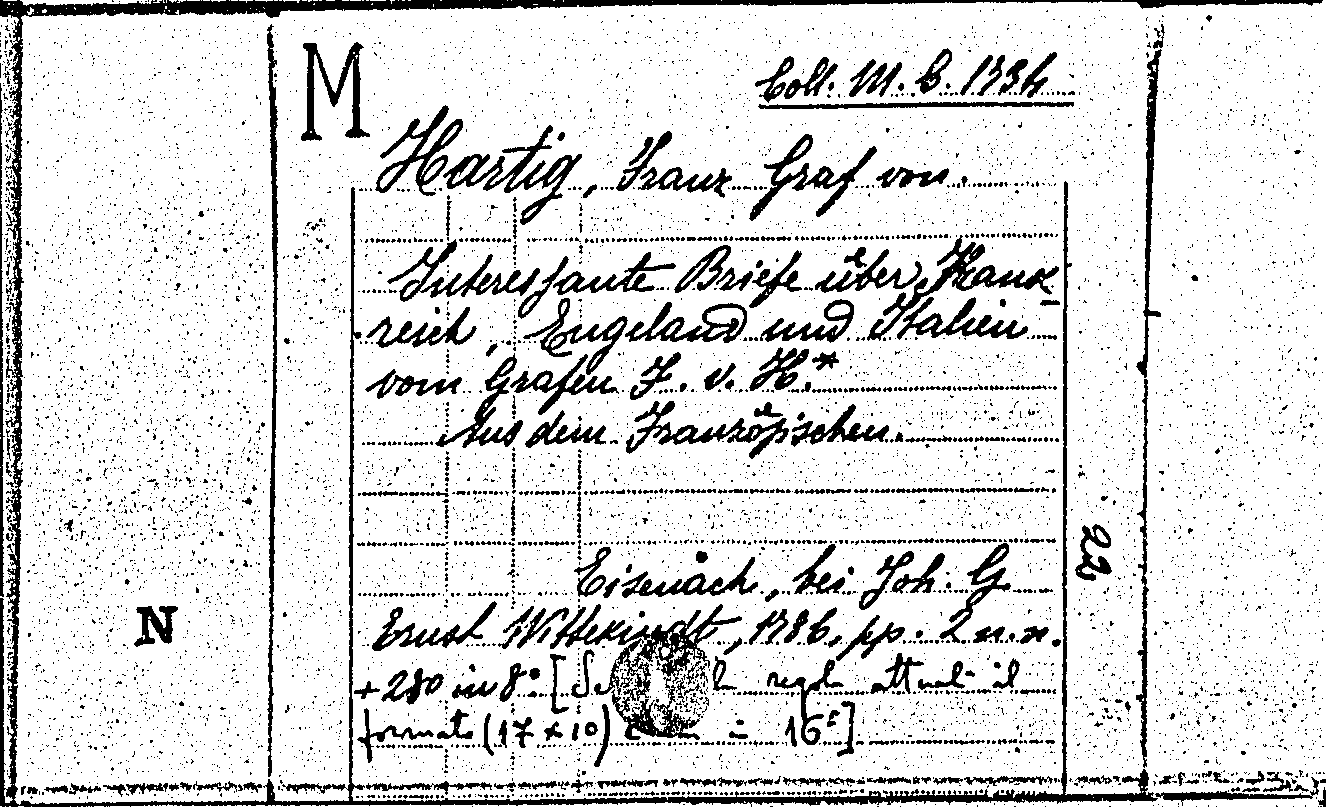 M
Coll. M. B. 1334
Hartig, Franz Graf von.
Interessante Briefe über Frank-
reich, Engeland und Italien
vom Grafen F. v. H.*
Aus dem Französischen.
22
Eisenach, bei Joh. G.
Ernst Wittekindt, 1786, pp. 2 n.n.
N
+ 280 in 8° [ regole attual- il
formato (17 x 10) in 16°]